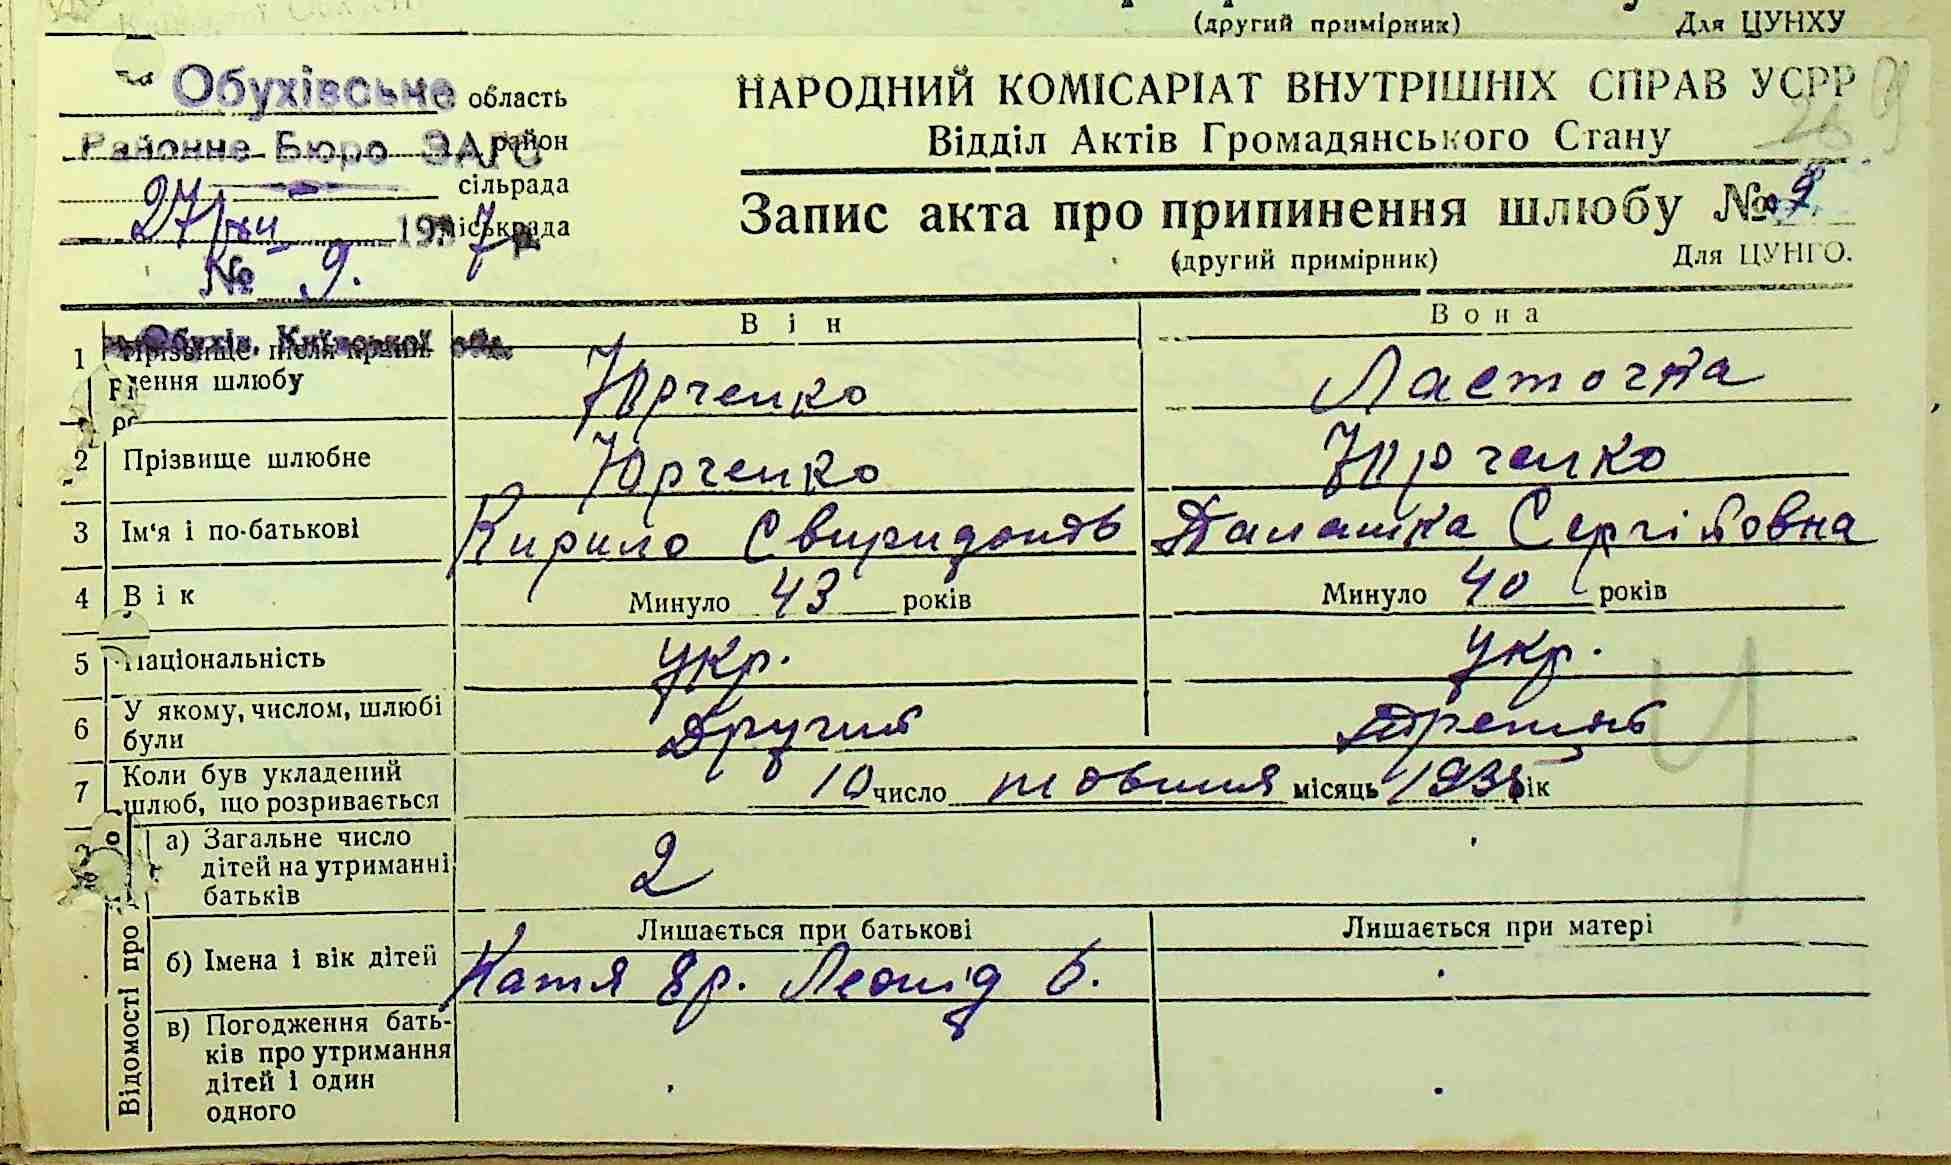 (другий примірник) Для ЦУНХУ
Обухівське область
Районне Бюро ЗАГС район
сільрада
27/XII 1937р. міськрада
№ 9.
НАРОДНИЙ КОМІСАРІАТ ВНУТРІШНІХ СПРАВ УСРР
Відділ Актів Громадянського Стану
Запис акта про припинення шлюбу № 9
(другий примірник) Для ЦУНГО.
Він Вона
Обухів, Київської обл.
1 Прізвище після припинення шлюбу Юрченко Ласточка
2 Прізвище шлюбне Юрченко Юрченко
3 Ім‘я і по-батькові Кирило Свиридонов Палашка Сергійовна
4 Вік Минуло 43 років Минуло 40 років
5 Національність укр. укр.
6 У якому, числом, шлюбі
були Другий Третій
7 Коли був укладений
шлюб, що розривається 10 число жовтня місяць 193 рік
Відомості про
а) Загальне число
дітей на утриманні
батьків 2
Лишається при батькові Лишається при матері
б) Імена і вік дітей Катя 8р. Леонід 6.
в) Погодження бать-
ків про утримання
дітей і один
одного